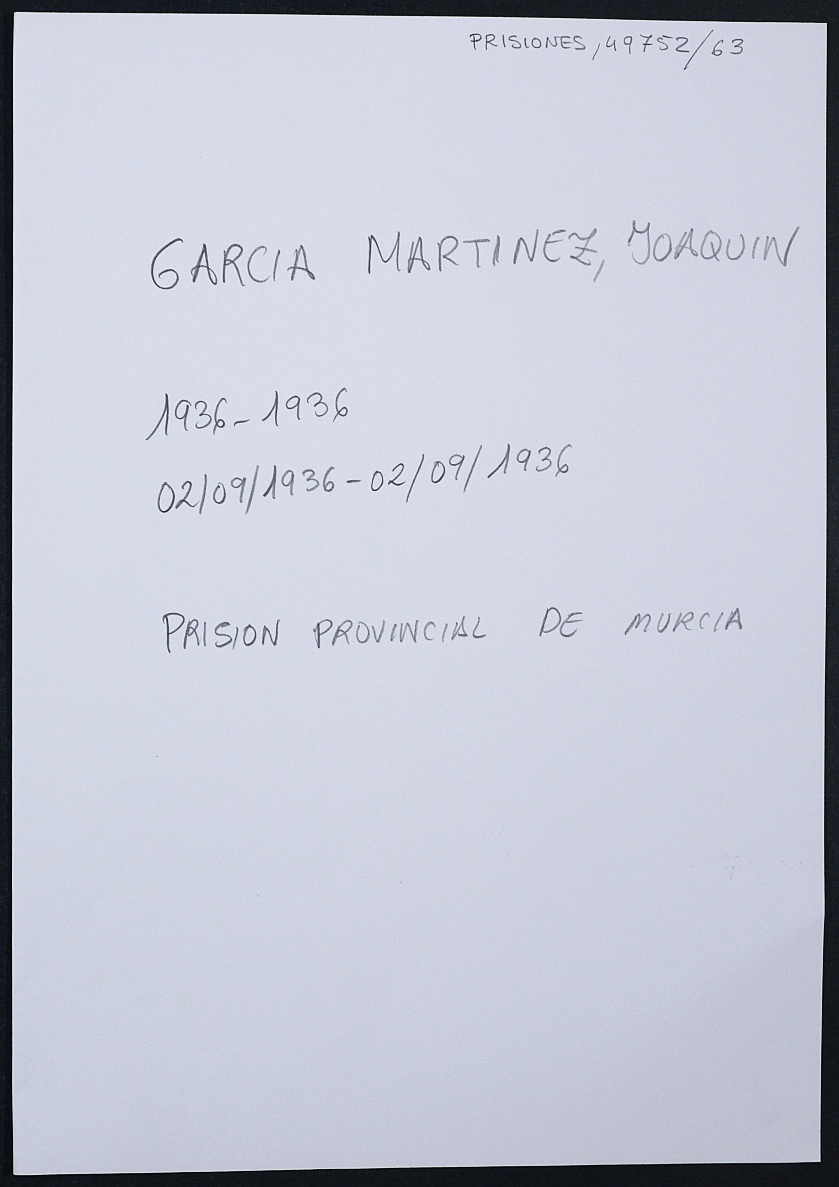 PRISIONES, 49752/63
GARCIA MARTINEZ, JOAQUIN
1936-1936
02/09/1936-02/09/1936
PRISION PROVINCIAL DE MURCIA